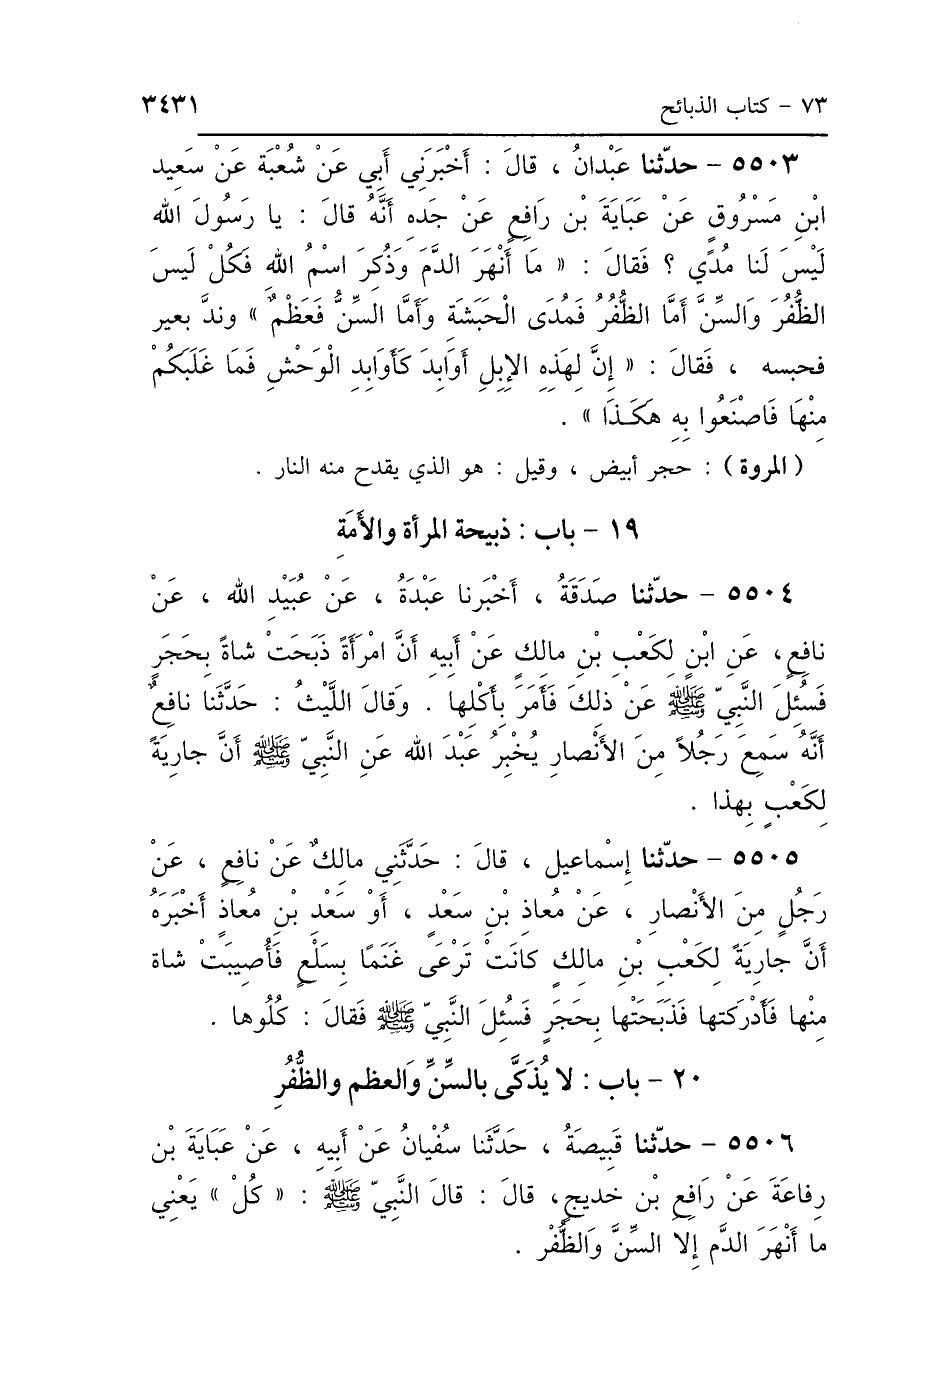 ٧٣ - كتاب الذبائح ٣٤٣١
٥٥٠٣ - حدّثنا عَبْدانُ ، قالَ : أَخْبَرَني أَبِي عَنْ شُعْبَة عَنْ سَعِيد
ابْنِ مَسْرُوقٍ عَنْ عَبَايَةَ بْن رَافِعٍ عَنْ جَده أَنَّهُ قالَ : يا رَسُولَ الله
لَيْسَ لَنا مُدًي ؟ فَقالَ : « مَا أَنْهَرَ الدَّمَ وَذُكِرَ اسْمُ اللهِ فَكُلْ لَيسَ
الظُّفُرَ وَالسِّنَّ أَمَّا الظُّفُرُ فَمُدَى الْحَبَشَة وَأَمَّا السِّنُّ فَعَظْمٌ » وندَّ بعير
فحبسه ، فَقالَ : « إِنَّ لِهَذِهِ الإِبِلِ أَوَابِدَ كَأَوَابِدِ الْوَحْشِ فَمَا غَلَبَكُمْ
مِنْهَا فَاصْنَعُوا بِهِ هَكَـذَا » .
( المروة ) : حجر أبيض ، وقيل : هو الذي يقدح منه النار .
١٩ - باب : ذبيحة المرأة والأَمَةِ
٥٥٠٤ - حدّثنا صَدَقَةُ ، أَخْبَرنا عَبْدَةُ ، عَنْ عُبَيْدِ الله ، عَنْ
نافِعٍ، عَنِ ابْنٍ لِكَعْبِ بْنِ مالِكٍ عَنْ أَبِيه أَنَّ امْرَأَةً ذَبَحَتْ شاةً بِحَجَرٍ
فَسُئِلَ النَّبيّ ﷺ عَنْ ذلكَ فَأَمَرَ بِأَكْلِها . وَقالَ اللَّيْثُ : حَدَّثَنا نافِعٌ
أَنَّهُ سَمِعَ رَجُلاً مِنَ الأَنْصارِ يُخْبِرُ عَبْدَ الله عَنِ النَّبيّ ﷺ أَنَّ جارِيَةً
لِكَعْبٍ بِهذا .
٥٥٠٥ - حدّثنا إِسْماعيل ، قالَ : حَدَّثَنِي مالِكٌ عَنْ نافِعٍ ، عَنْ
رَجُلٍ مِنَ الأَنْصارِ ، عَنْ مُعاذِ بْنِ سَعْدٍ ، أَوْ سَعْدِ بْنِ مُعاذٍ أَخْبَرَهُ
أَنَّ جارِيَةً لِكَعْبِ بْنِ مالِكٍ كانَتْ تَرْعَى غَنَمًا بِسَلْعٍ فَأُصِيبَتْ شاة
مِنْها فَأَدْرَكتها فَذَبَحَتْها بِحَجَرٍ فَسُئِلَ النَّبيّ ﷺ فَقالَ : كُلُوها .
٢٠ - باب : لا يُذَكَّى بالسِّنِّ وَالعظم والظُّفُرِ
٥٥٠٦ - حدّثنا قَبِيصَةُ ، حَدَّثَنا سُفْيانُ عَنْ أَبِيهِ ، عَنْ عَبَايَةَ بْن
رِفاعَةَ عَنْ رَافِعِ بْن خديجٍ، قالَ : قالَ النَّبيّ ﷺ : « كُلْ » يَعْنِي
ما أَنْهَرَ الدَّم إِلا السِّنَّ وَالظُّفْر .